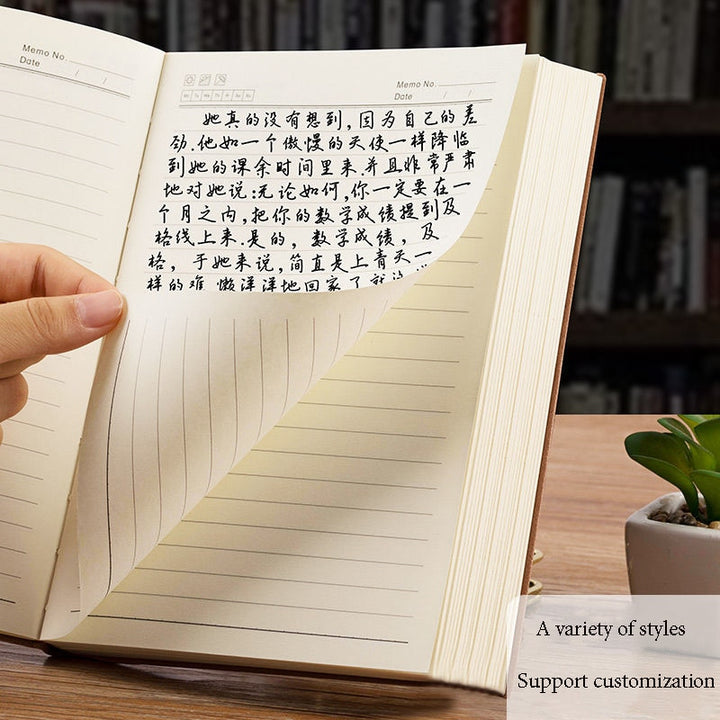 Memo No.
Date / /
Memo No.
Date / /
Mo Tu We Th Fr Sa Su
她真的没有想到,因为自己的差
劲.他如一个傲慢的天使一样降临
到她的课余时间里来.并且非常严肃
地对她说:无论如何,你一定要在一
个月之内,把你的数学成绩提到及
格线上来.是的,数学成绩,及
格,于她来说,简直是上青天一
样的难 懒洋洋地回家了就
A variety of styles
Support customization